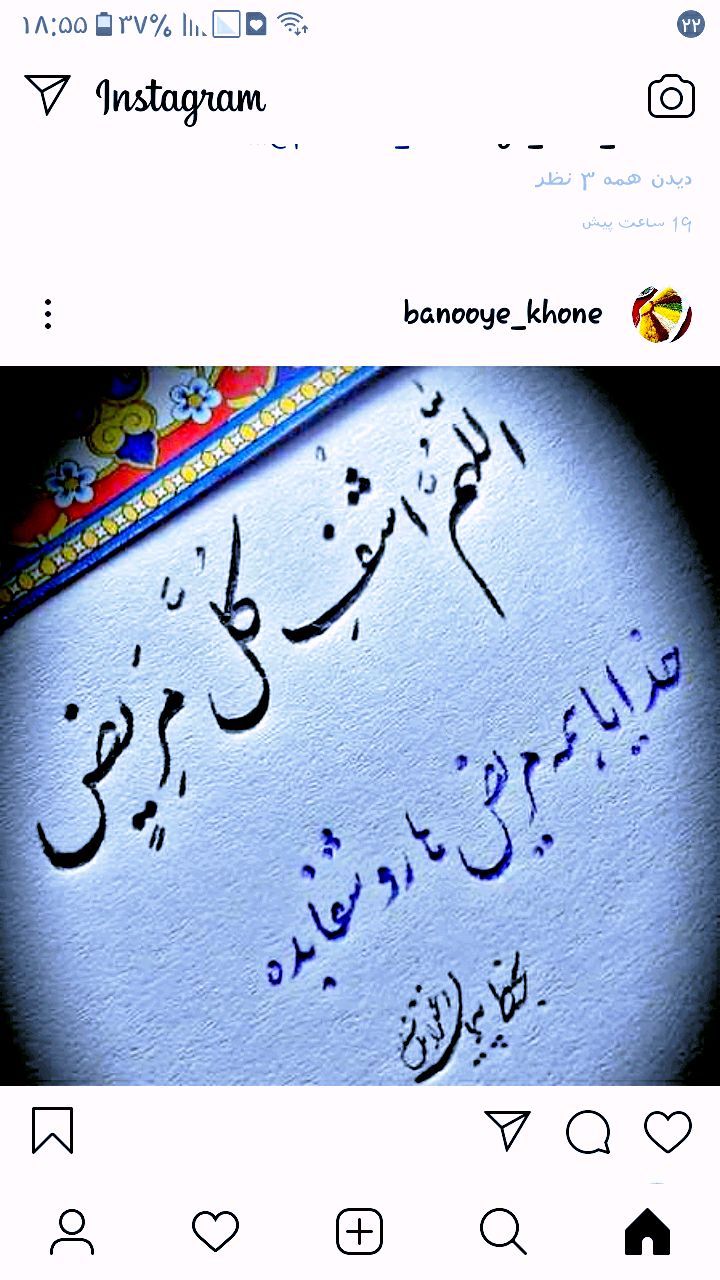 ۱۸:۵۵ ۳۷% ۲۲
Instagram
دیدن همه ۳ نظر
۱۹ ساعت پیش
banooye_khone
اللهمَّ اشفِ کلَّ مَرِیضٍ
خدایا همه مریض ها رو شفا بده